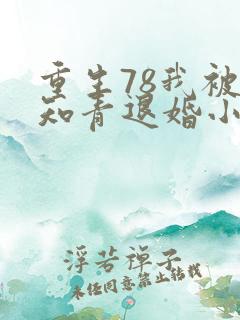 重生78我被
知青退婚小
浮若禅子
未经同意禁止转载